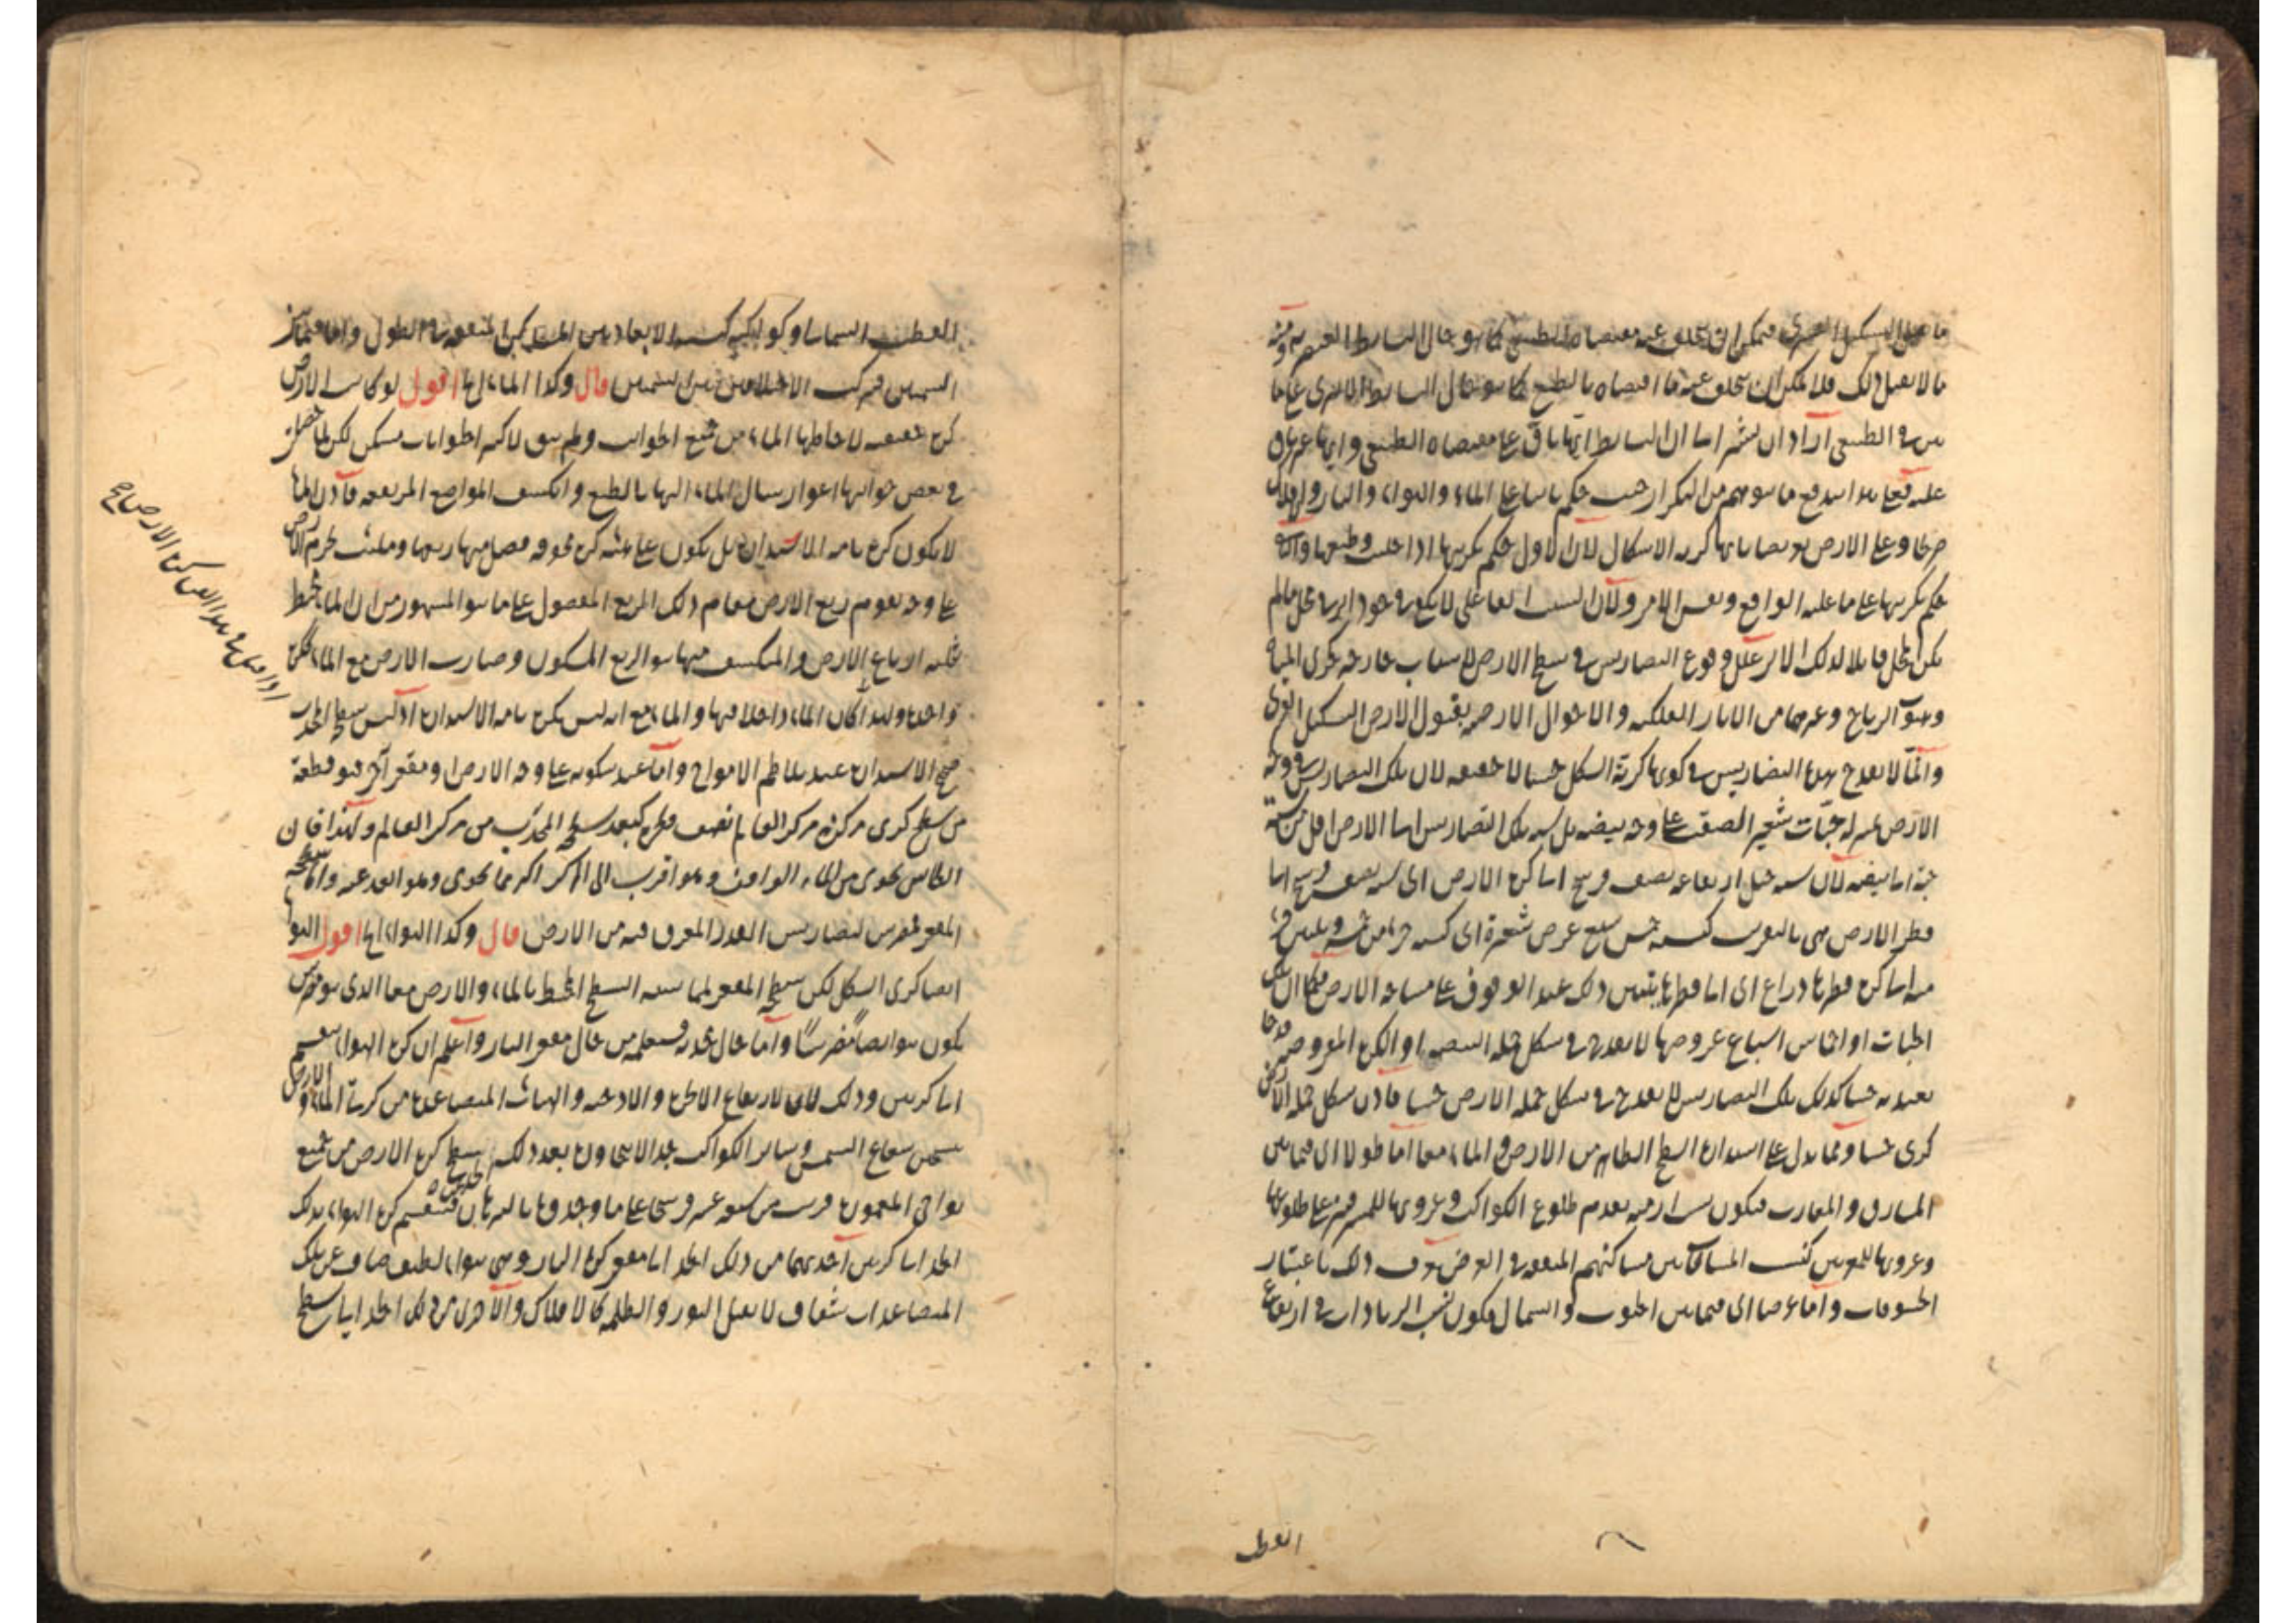 ما يقبل الشكل القسري فيمكن ان يتخلف عنه مقتضاه الطبيعي كما هو حال البسايط العنصرية ومنه
ما لا يقبل ذلك فلا يمكن ان يتخلف عنه ما اقتضاه بالطبع كما هو حال البسايط الاثيرى على ما
بين في الطبيعى اراد ان يشير الى ان البسايط ايها باق على مقتضاه الطبيعى وايها غير باق
عليه فعلى هذا اندفع ما يتوهم من التكرار حيث حكم بانها على الماء والهواء والنار والافلاك
وعلى الارض بتضاريسها كرية الاشكال لان الاول حكم بكريتها اذا خليت وطبعها والثانى
حكم بكريتها على ما عليه الواقع ونفس الامر ولان السبب الفاعلى لا يكفى في وجود اثره في محل ما لم
يكن المحل قابلا لذلك الاثر علل وقوع التضاريس في سطح الارض لاسباب خارجة كجرى المياه
وهبوب الرياح وغيرهما من الاثار الفلكية والاحوال الارضية بقبول الارض الشكل القسرى
وانما لا يقدح هذه التضاريس في كونها كرية الشكل حسا لا حقيقة لان تلك التضاريس في وجه
الارض بمنزلة حبات شعير الصقت على وجه بيضة بل نسبة تلك التضاريس الى الارض اقل من نسبة
حبة الى بيضة لان نسبة جبل ارتفاعه نصف فرسخ الى كرة الارض اى نسبة نصف فرسخ الى
قطر الارض هى بالتقريب كنسبة خمس سبع عرض شعيرة اى كنسبة جزء من خمسة وثلثين جزء
منه الى كرة قطرها ذراع اى الى قطرها يتبين ذلك عند الوقوف على مساحة الارض فكما ان تلك
الحبات او اخماس اسباع عروضها لا يقدح في شكل جملة البيضة او الكرة المفروضة قدحا
يعتد به حسا كذلك تلك التضاريس لا يقدح في شكل جملة الارض حسا فاذن شكل جملة الارض
كرى حسا ومما يدل على استدارة السطح الظاهر من الارض والماء معا اما طولا اى فيما بين
المشارق والمغارب فيكون تقدم طلوع الكواكب وغروبها للمشرقين على طلوعها
وغروبها للمغربين بحسب المسافة بين مساكنهم المتفقة في العرض يعرف ذلك باعتبار
الخسوفات واما عرضا اى فيما بين الجنوب والشمال فيكون نسب الازدياد في ارتفاع
القطب
القطب السماوى وكواكبه كنسب الابعاد بين المساكن المتفقة في الطول واما فيما بين
السمتين فبتركب الاختلافين بين السمتين قال وكذا الماء الى اقول لو كانت الارض
كرة حقيقة لاحاطها الماء من جميع الجوانب ولم يبق لاكثر الحيوانات مسكن لكن لما حصلت
في بعض جوانبها اغوار سال الماء اليها بالطبع وانكشف المواضع المرتفعة فاذن الماء
لا يكون كرة تامة الاستدارة بل يكون على هيئة كرة مجوفة فصل منها ربعها وملئت بجرم الارض
على وجه يقوم ربع الارض مقام ذلك الربع المفصول على ما هو المشهور من ان الماء محيط
بثلثة ارباع الارض والمنكشف منها هو الربع المسكون وصارت الارض مع الماء ككرة
واحدة ولهذا كان الماء داخلا فيها والماء مع انه ليس بكرة تامة الاستدارة اذ ليس سطح المحدب
صحيح الاستدارة عند تلاطم الامواج واما عند سكونه على وجه الارض او مقعر آخر فهو قطعة
من سطح كرى مركزه مركز العالم نصف قطره كبعد سطحه المحدب من مركز العالم ولهذا فان
الكاس يحوى من الماء الواحد وهو اقرب الى المركز اكثر مما يحوى وهو ابعد عنه واما سطحه
المقعر فمضرس لتضاريس القدر المغرق فيه من الارض قال وكذا الهواء الى اقول الهواء
ايضا كرى الشكل لكن سطحه المقعر لمماسته السطح المحيط بالماء والارض معا الذى هو مضرس
يكون هو ايضا مضرسا واما حال محدبه فستعلم من حال مقعر النار واعلم ان كرة الهواء ينقسم
الى كرتين وذلك لان لارتفاع الابخرة والادخنة والهباءات المتصاعدة من كرتى الماء والارض
بتسخين شعاع الشمس وساير الكواكب حدا لا يتجاوزه بعد ذلك الحد عن سطح كرة الارض من جميع
نواحى المعمورة قريب من سبعة عشر فرسخا على ما وجدوها بالبرهان فينقسم كرة الهواء بذلك
الحد الى كرتين احديهما من ذلك الحد الى مقعر كرة النار وهى هواء لطيف صاف عن تلك
المتصاعدات شفاف لا يقبل النور والظلمة كالافلاك والاخرى من ذلك الحد الى سطح